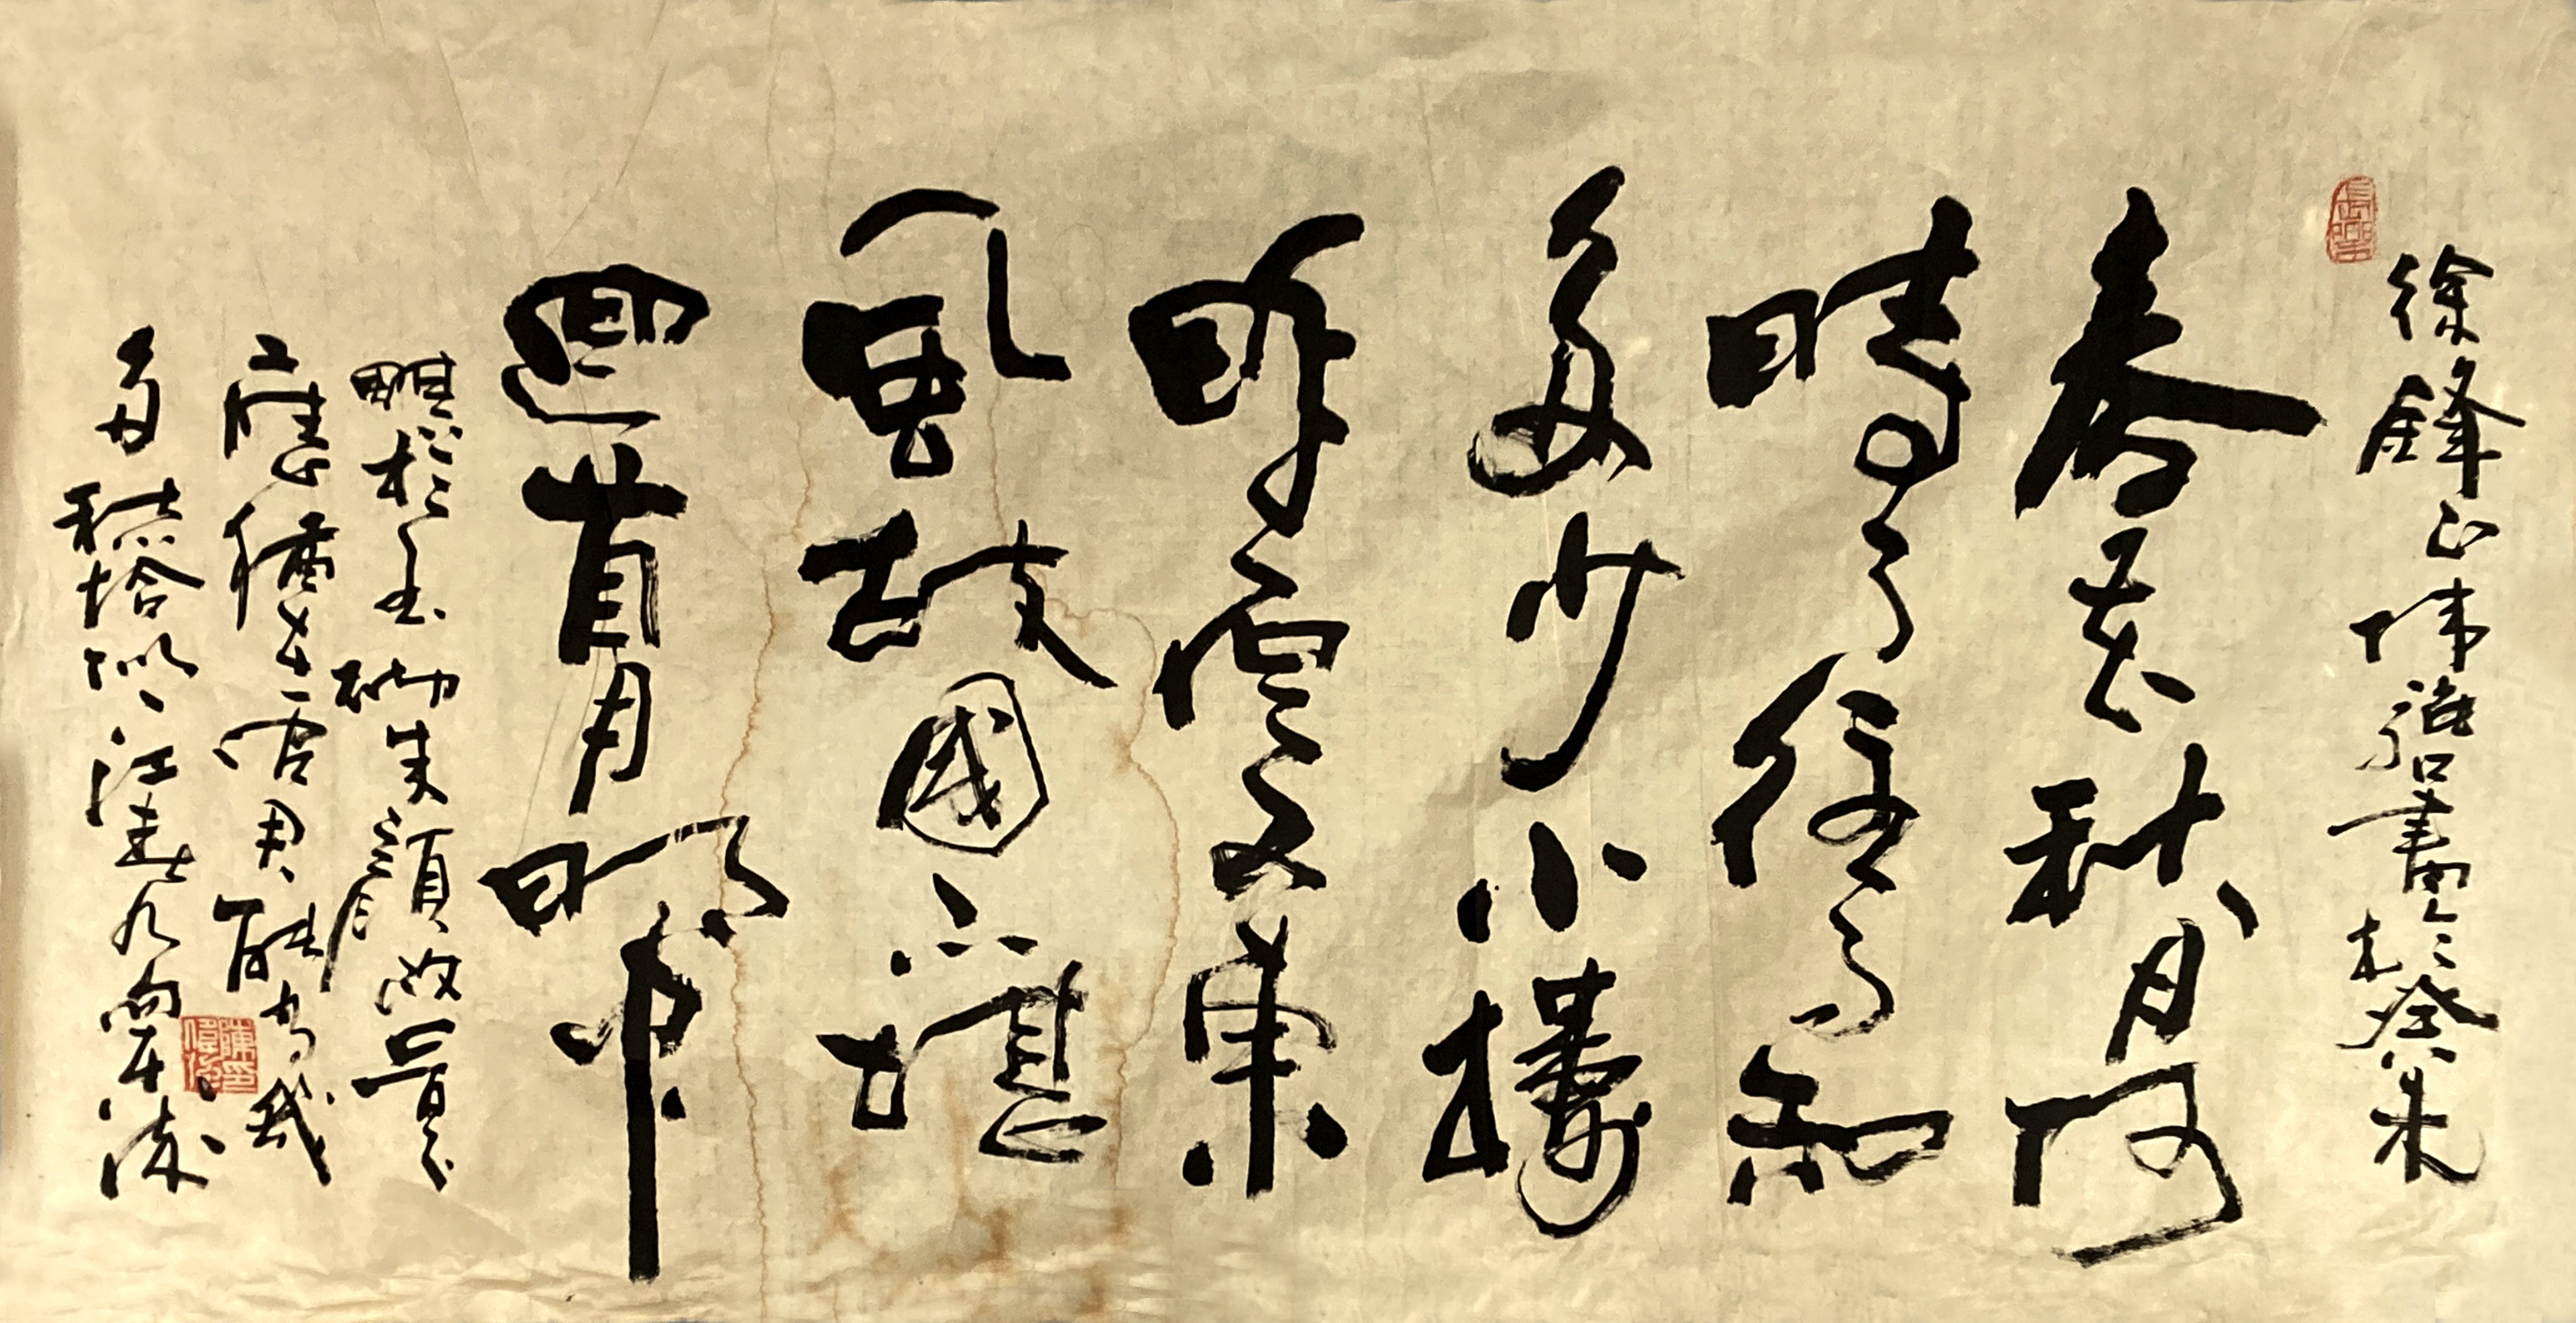 徐鋒正 書於癸未
春花秋月何
時了往事知
多少小樓
昨夜又東
風故國不堪
迴首月明中
雕栏玉砌朱顏改
應猶在 問君能有幾
多愁恰似一江春水向東流
長樂